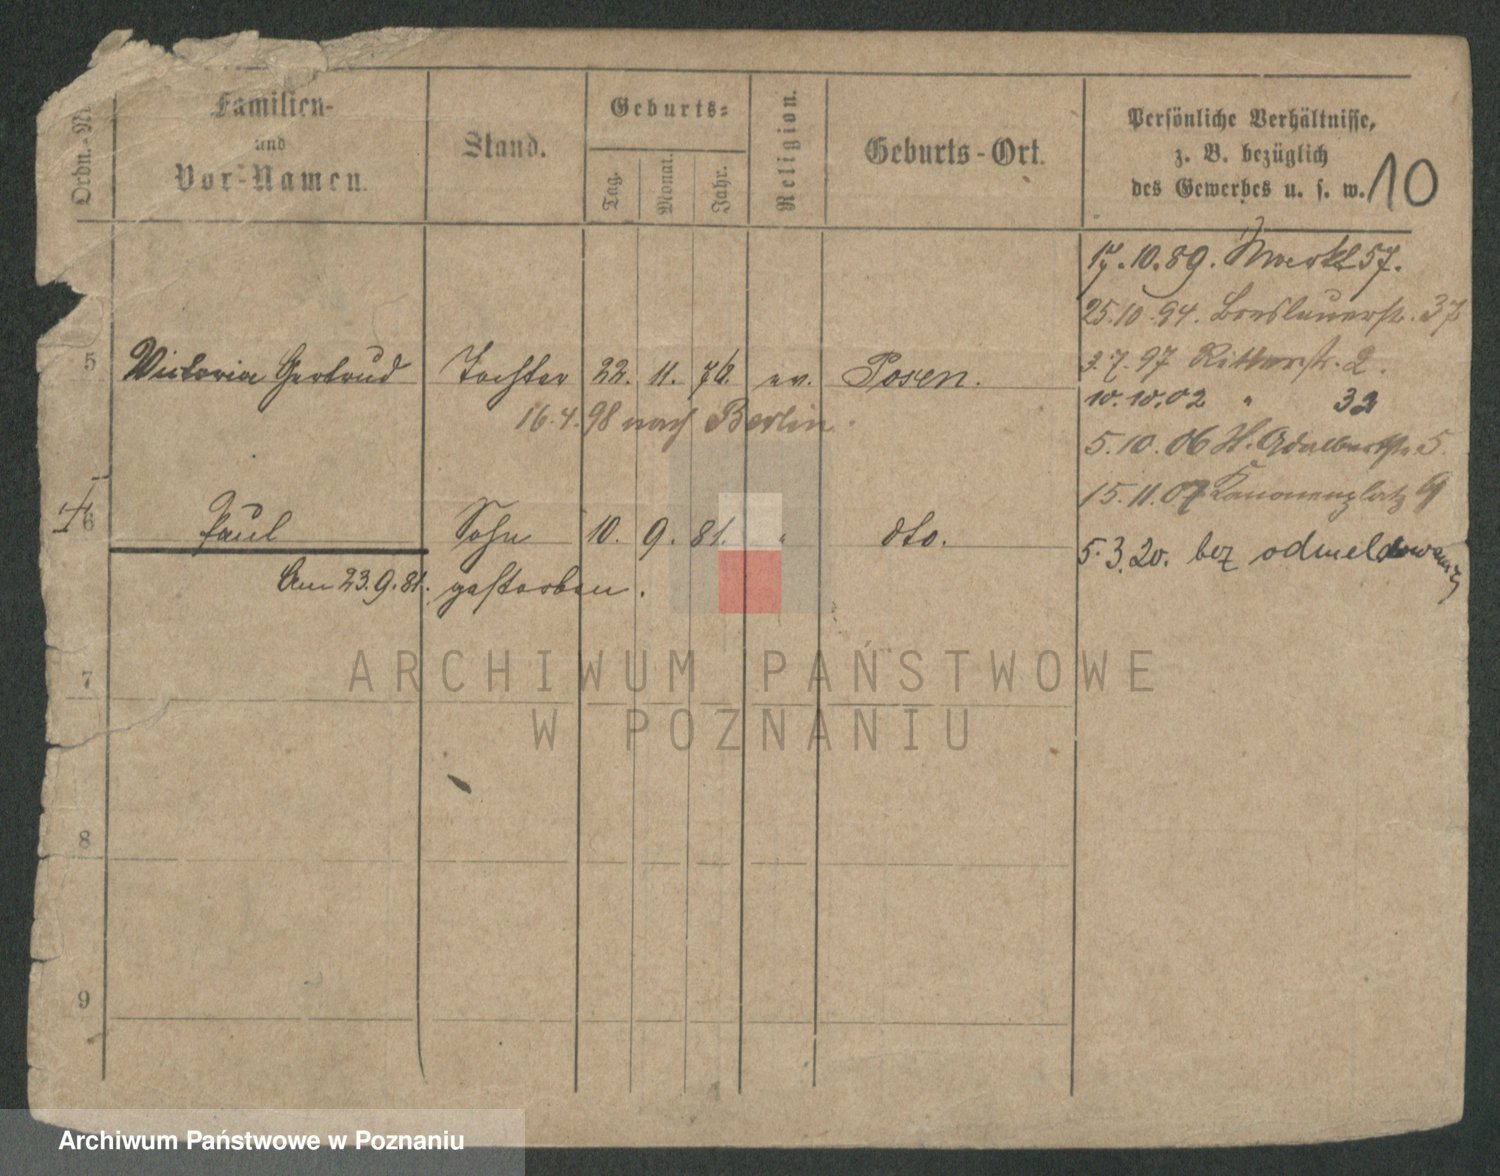 Ordn.-Nr.
Familien-
und
Vor-Namen.
Stand.
Geburts-
Tag.
Monat.
Jahr.
Religion.
Geburts-Ort.
Persönliche Verhältnisse,
z. B. bezüglich
des Gewerbes u. s. w.
10
17.10.89. 57.
25.10.94. Breslauerstr. 37
5 Victoria Gertrud Tochter 22. 11. 76. ev. Posen.
3.7.97 Ritterstr. 2.
16.4.98 nach Berlin.
10.10.02 " 32
5.10.06 H. Adalbertstr. 5.
15.11.07 Kanonenplatz 9
6 Paul Sohn 10. 9. 81. " dto.
5.3.20. bez odmeldowania
Am 23.9.81. gestorben.
7
8
9
ARCHIWUM PAŃSTWOWE
W POZNANIU
Archiwum Państwowe w Poznaniu